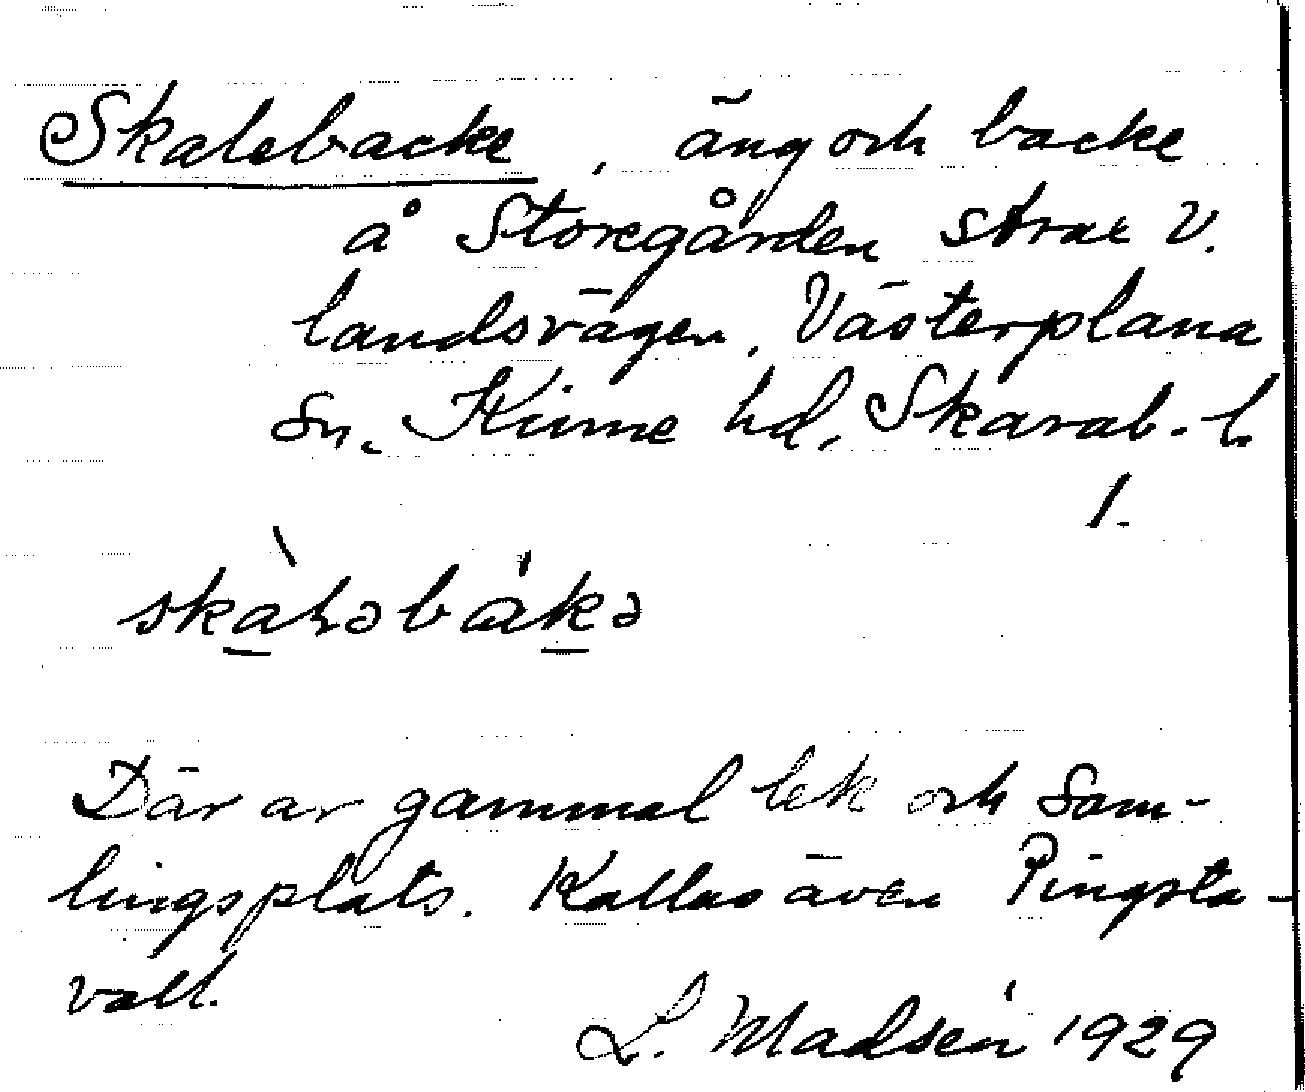 Skalebacke, äng och backe
å Storegården strax V.
landsvägen, Västerplana
Sn, Kinne hd, Skarab. l.
1.
skàləbákə
Där är gammal lek och Sam-
lingsplats. Kallas även Pingsta-
vall.
L. Madsén 1929